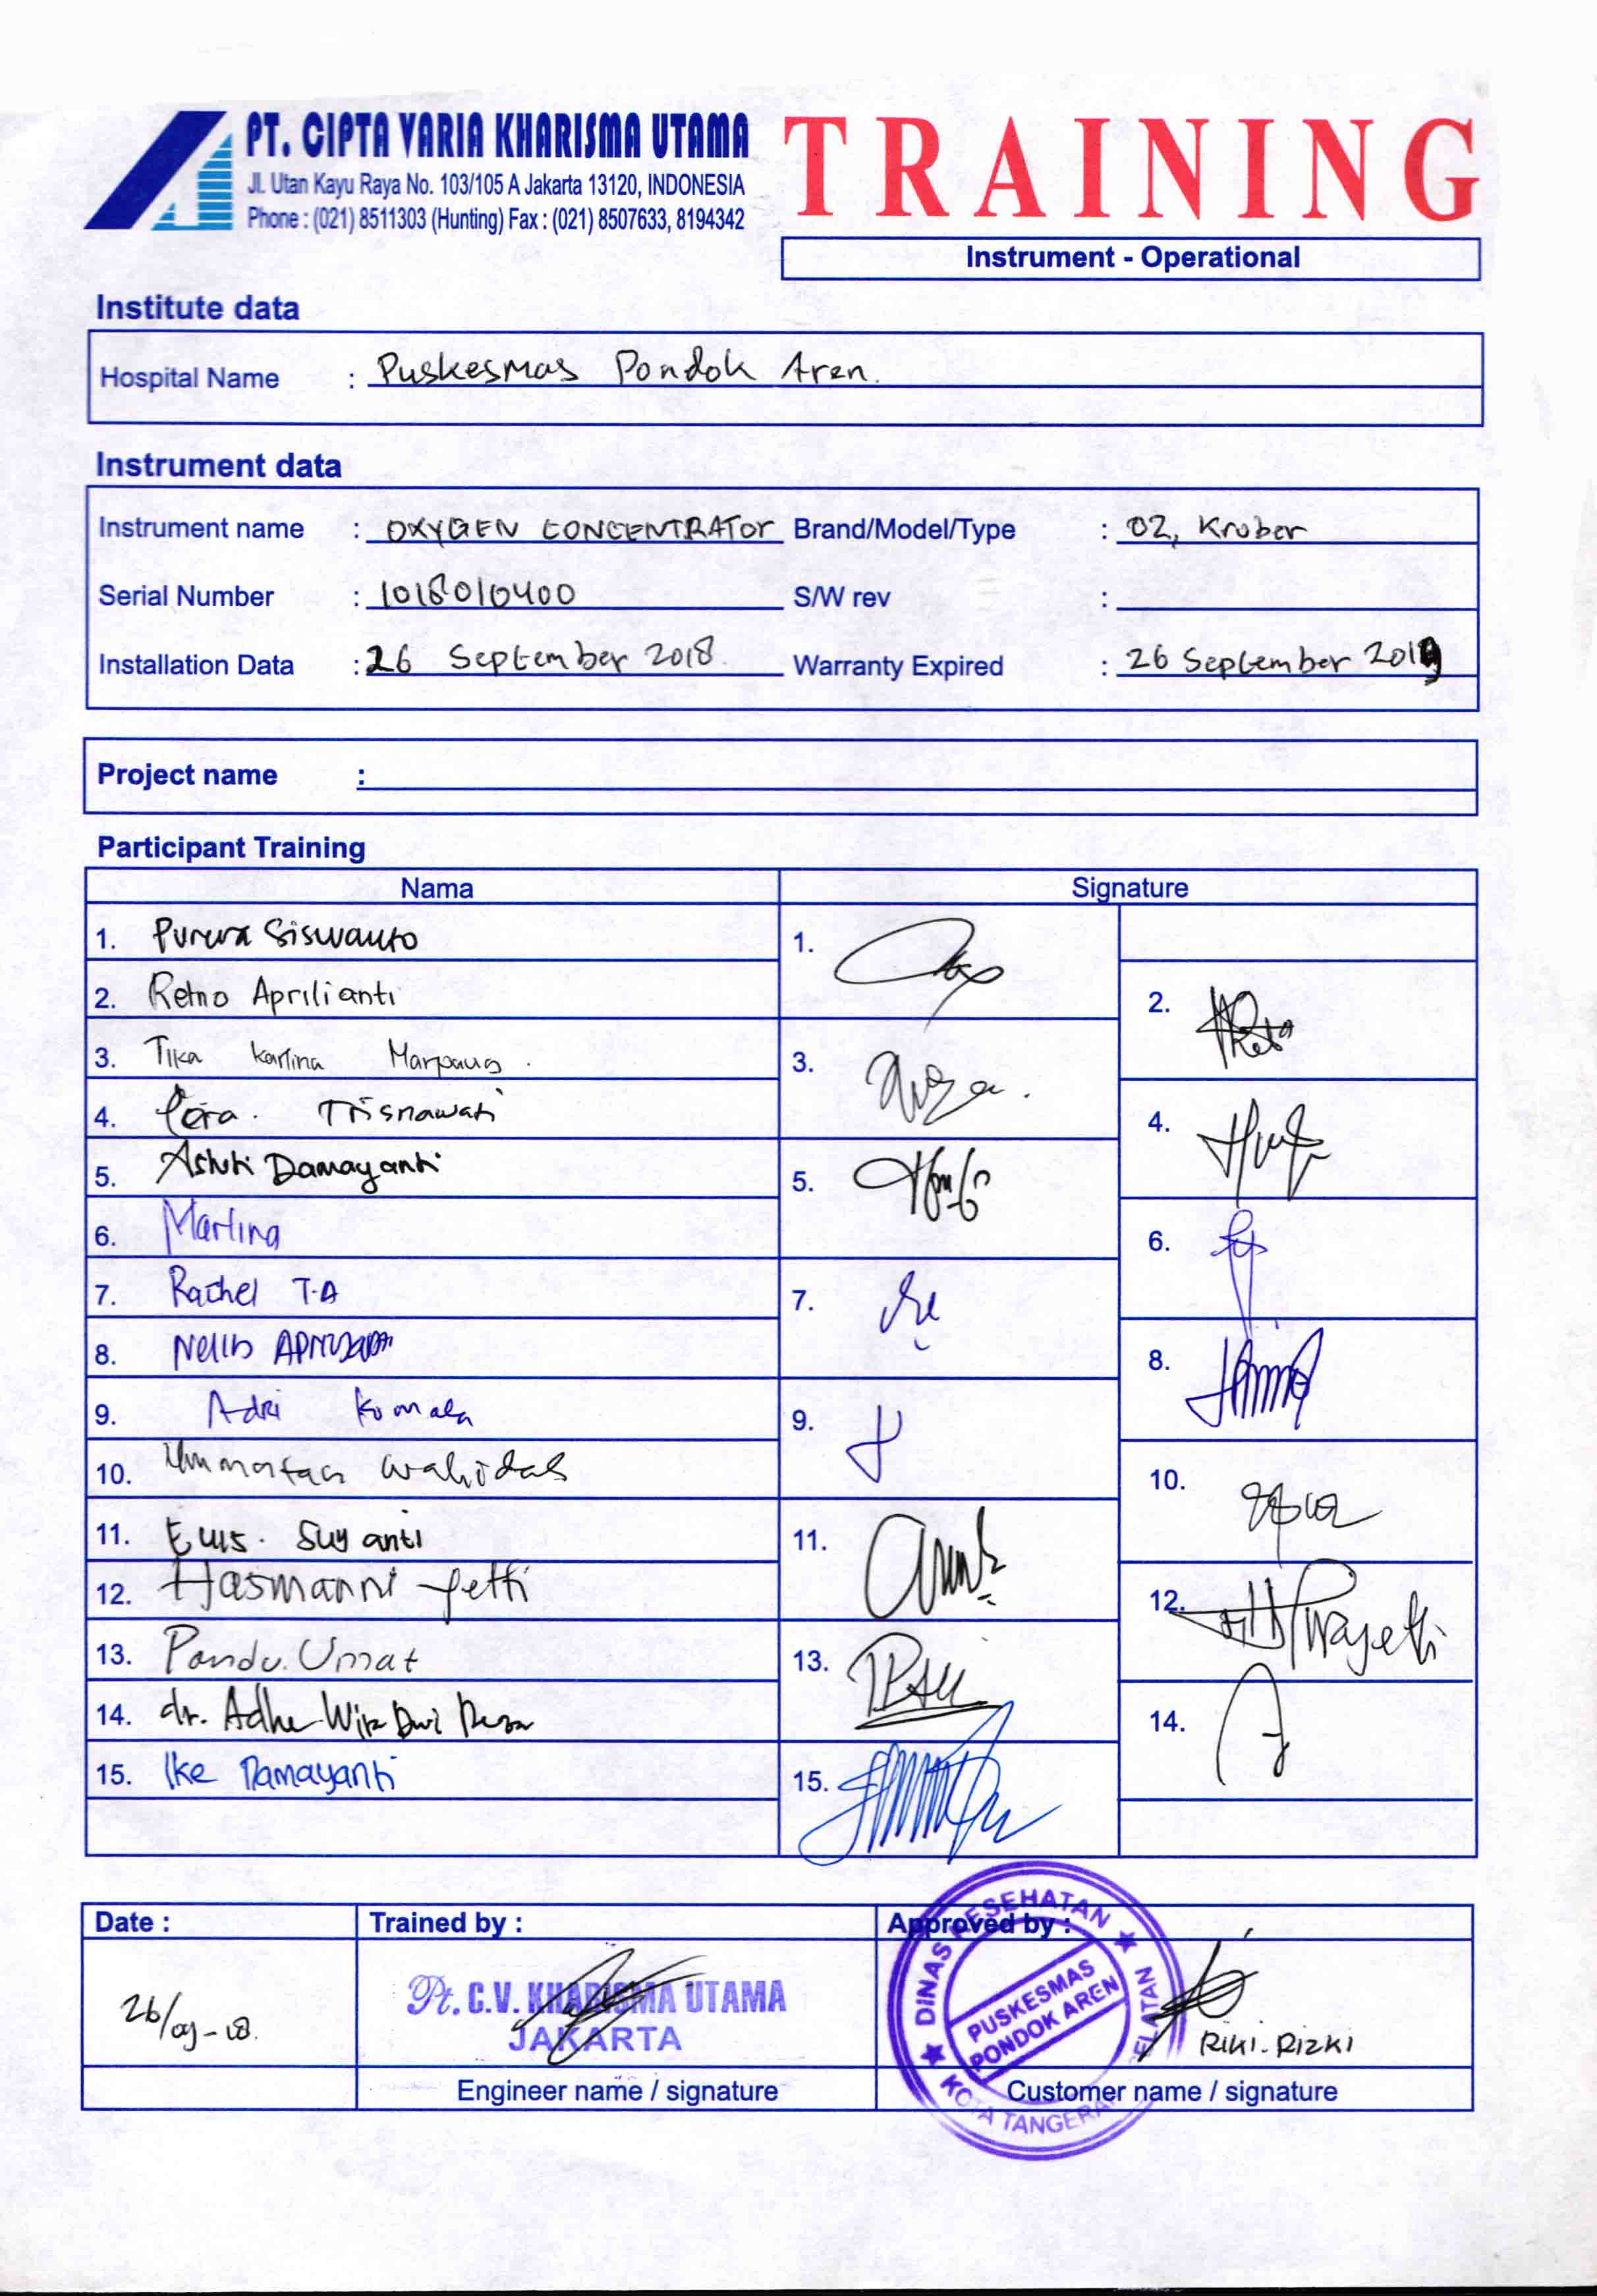 PT. CIPTA VARIA KHARISMA UTAMA
Jl. Utan Kayu Raya No. 103/105 A Jakarta 13120, INDONESIA
Phone : (021) 8511303 (Hunting) Fax : (021) 8507633, 8194342
TRAINING
Instrument - Operational
Institute data
Hospital Name : Puskesmas Pondok Aren.
Instrument data
Instrument name : OXYGEN CONCENTRATOr Brand/Model/Type : O2, Krober
Serial Number : 1018010400 S/W rev :
Installation Data : 26 September 2018 Warranty Expired : 26 September 2019
Project name :
Participant Training
Nama Signature
1. Siswanto 1.
2. Retno Aprilianti 2.
3. Tika Karlina Marpaung . 3.
4. Trisnawati 4.
5. Astuti Damayanti 5.
6. Martina 6.
7. Rachel T.A 7.
8. 8.
9. Adri Komala 9.
10. 10.
11. Euis. Suyanti 11.
12. Hasmanni Yetti 12.
13. Pandu. Umat 13.
14. dr. Adhe 14.
15. Ike Damayanti 15.
Date : Trained by : Approved by :
26/09-18.
Pt. C.V. KHARISMA UTAMA
JAKARTA
DINAS KESEHATAN
PUSKESMAS
PONDOK AREN
KOTA TANGERANG SELATAN
RIKI. RIZKI
Engineer name / signature Customer name / signature